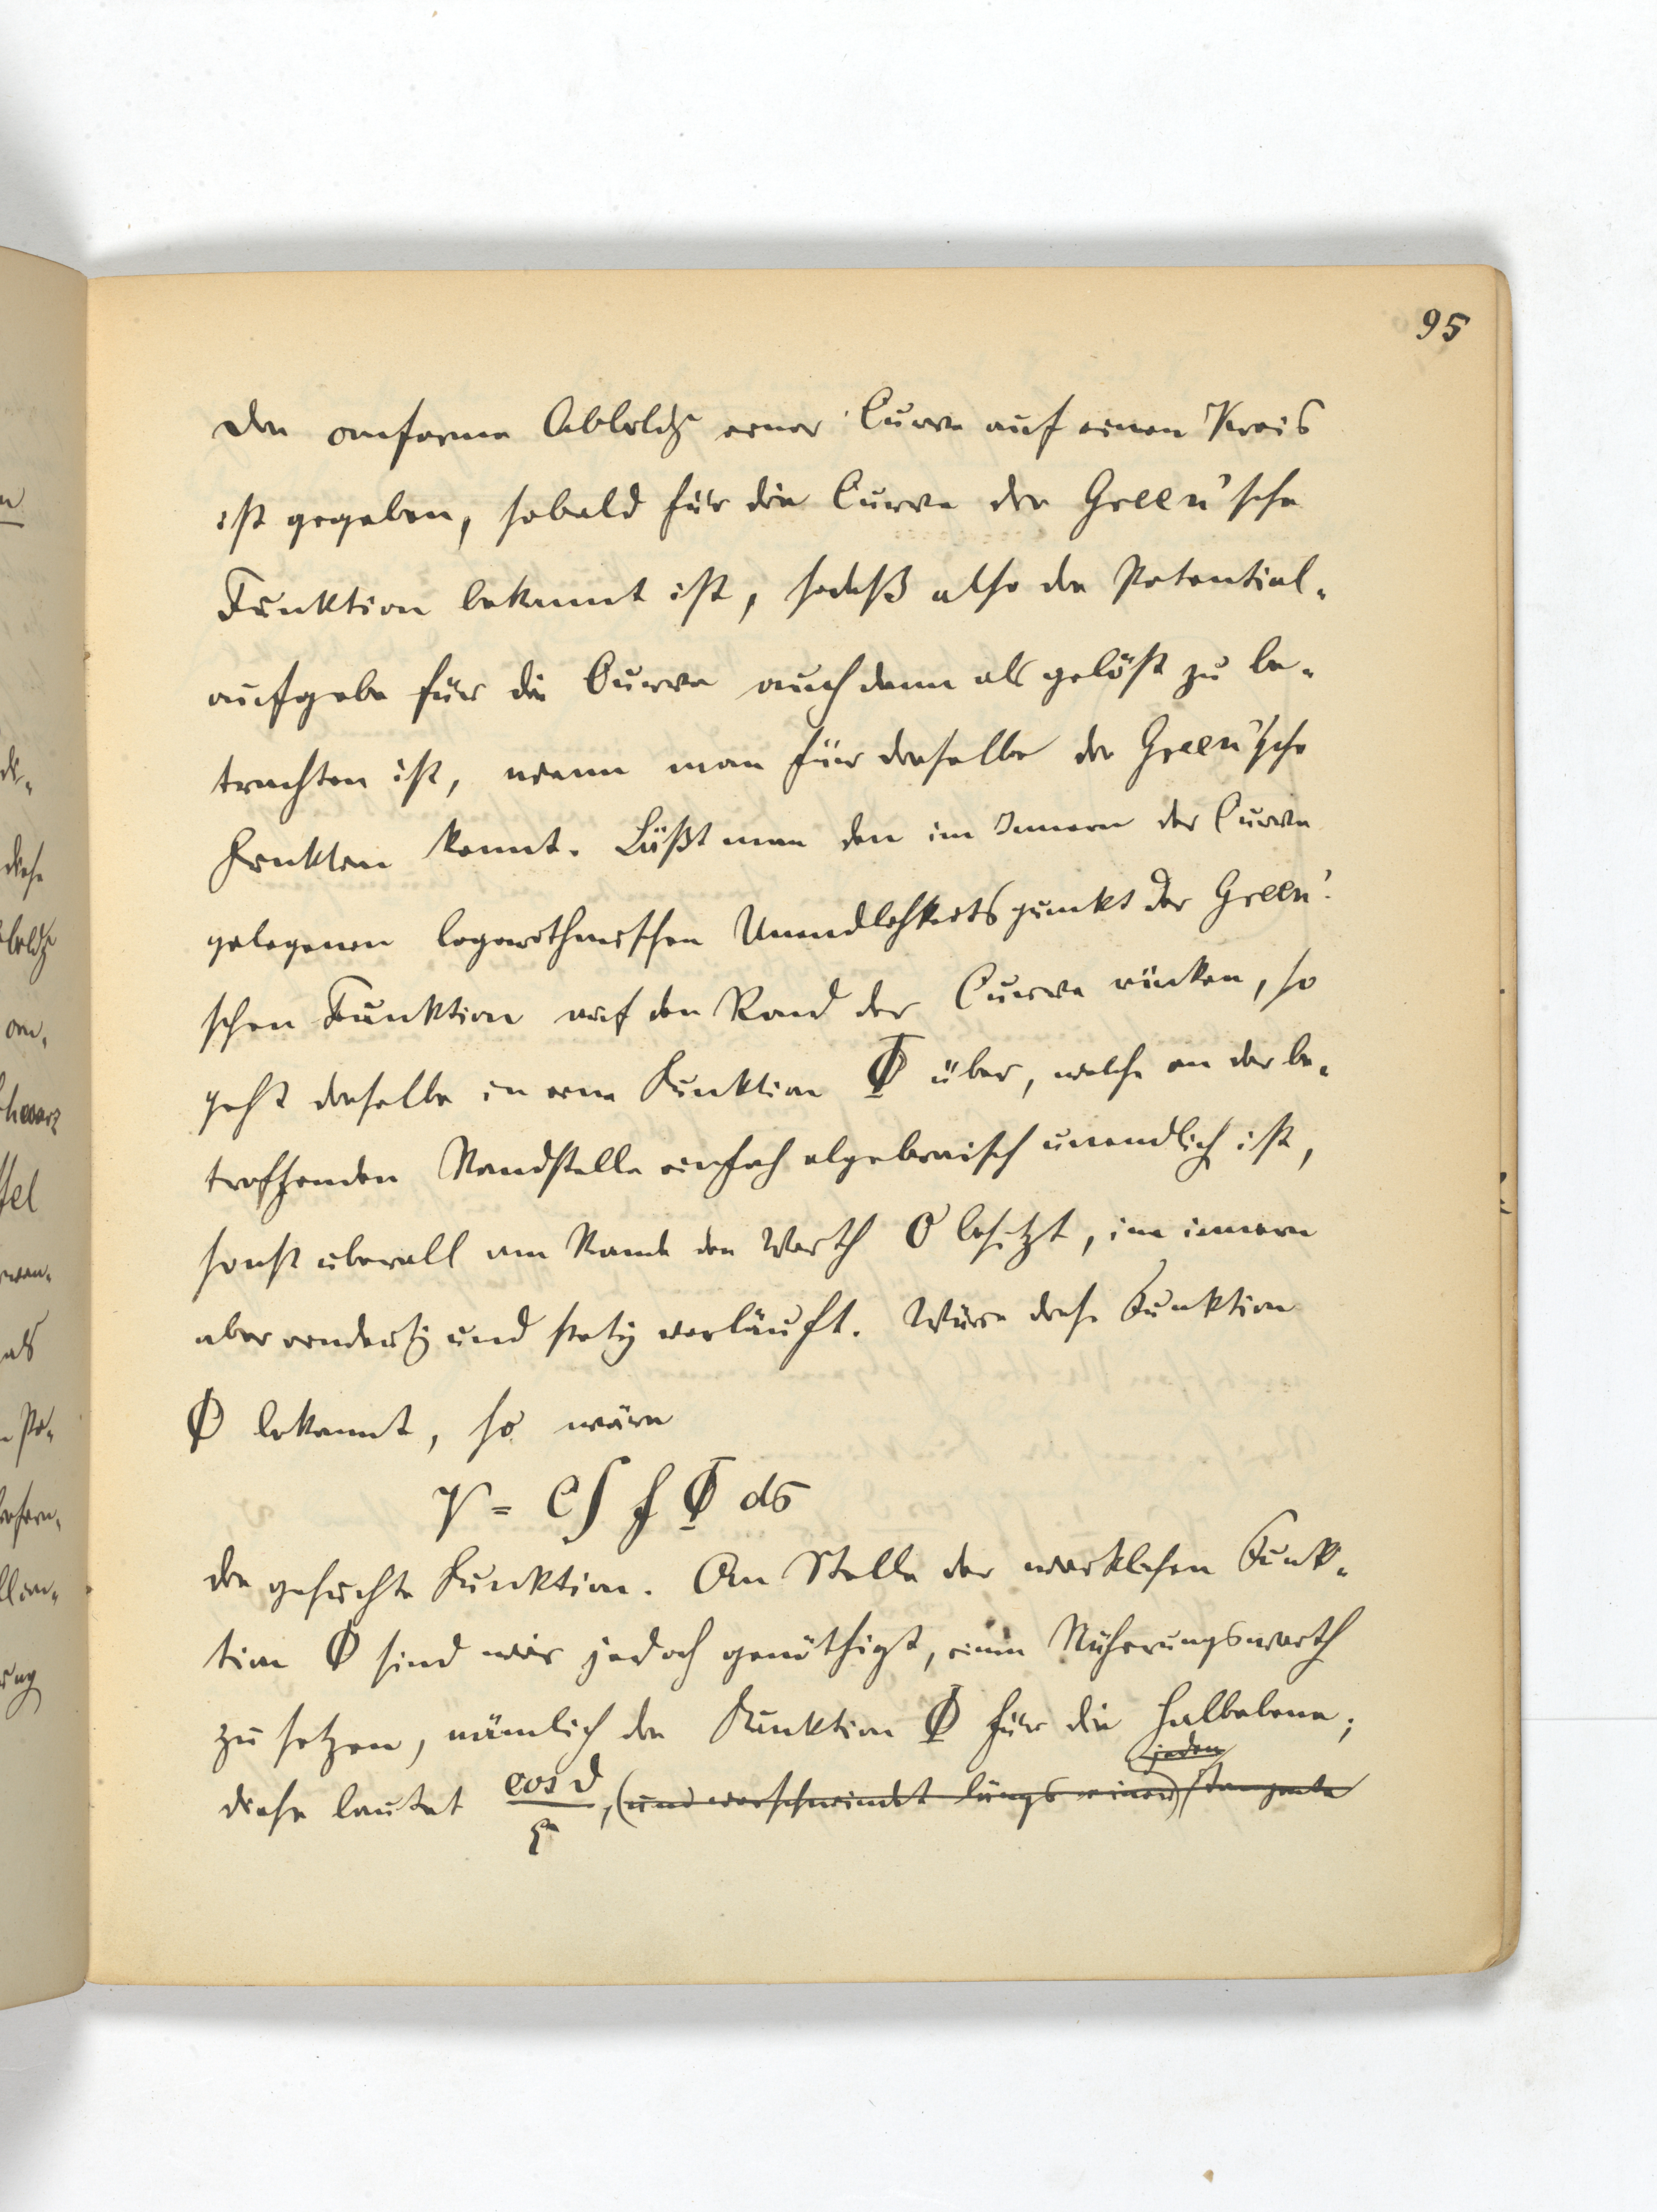 95
Die conforme Abbildg einer Curve auf einen Kreis
ist gegeben, sobald für die Curve die Green'sche
Funktion bekannt ist, sodaß also die Potential-
aufgabe für die Curve auch dann als gelöst zu be-
trachten ist, wenn man für dieselbe die Green'sche
Funktion kennt. Läßt man den im Innern der Curve
gelegenen logarithmischen Unendlichkeitspunkt der Green'-
schen Funktion auf den Rand der Curve rücken, so
geht dieselbe in eine Funktion Φ über, welche an der be-
treffenden Randstelle einfach algebraisch unendlich ist,
sonst überall am Rande den Werth 0 besitzt, im innern
aber eindeutig und stetig verläuft. Wäre diese Funktion
Φ bekannt, so wäre
V = C∫ f Φ ds
die gesuchte Funktion. An Stelle der wirklichen Funk-
tion Φ sind wir jedoch genöthigt, einen Näherungswerth
zu setzen, nämlich die Funktion Φ für die Halbebene;
jeden
diese lautet cos ϑ / r, (und verschwindet längs einer) Tangente
n
di-
diese
bbildg
on-
chwarz
fel
als
Po-
ung